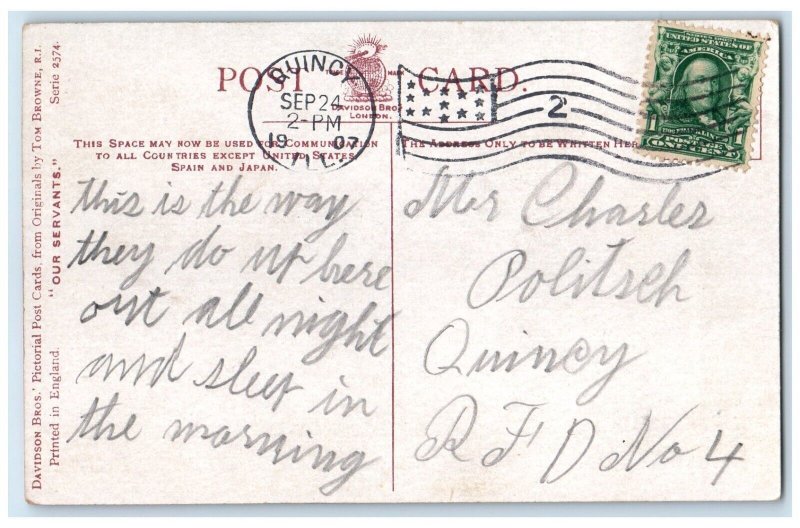 POST CARD.
DAVIDSON BROS
LONDON.
QUINCY
SEP 24
2-PM
1907
ILL.
2
UNITED STATES OF
AMERICA
POSTAGE
ONE CENT
THIS SPACE MAY NOW BE USED FOR COMMUNICATION
TO ALL COUNTRIES EXCEPT UNITED STATES
SPAIN AND JAPAN.
THE ADDRESS ONLY TO BE WRITTEN HERE
DAVIDSON BROS.' Pictorial Post Cards, from Originals by TOM BROWNE, R.I.
Printed in England. "OUR SERVANTS." Serie 2574.
this is the way
they do up here
out all night
and sleep in
the morning
Mr Charles
Politsch
Quincy
R F D No 4